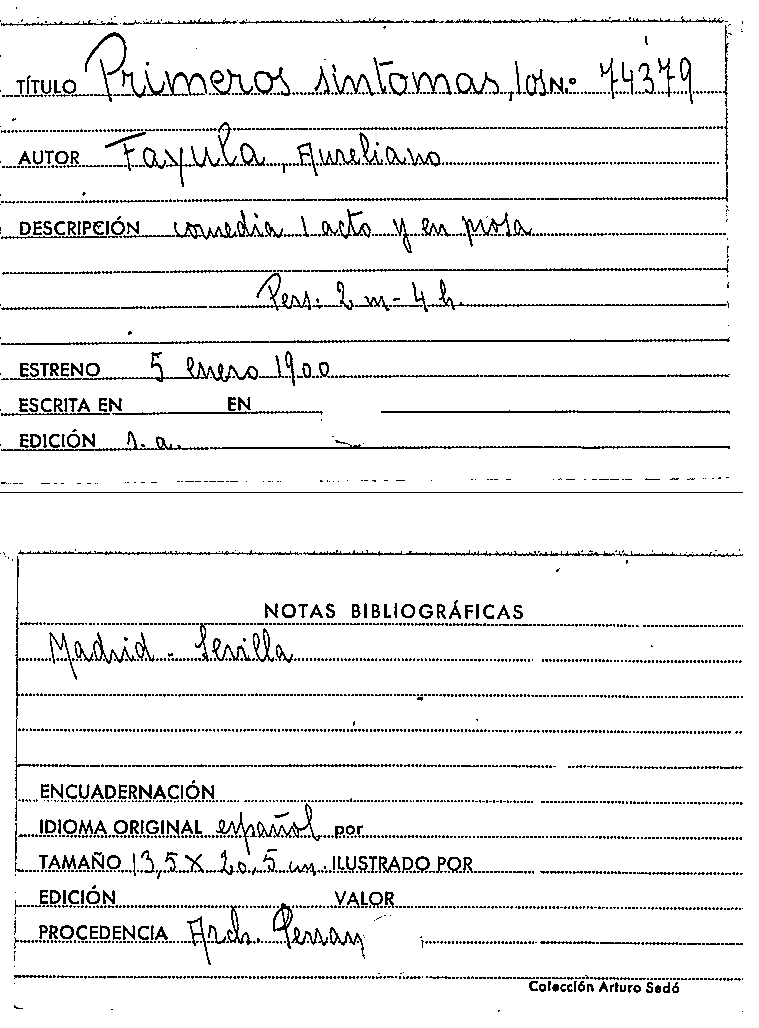 TÍTULO Primeros sintomas, los N.º 74379
AUTOR Fayula, Aureliano
DESCRIPCIÓN comedia 1 acto y en prosa
Pers: 2 m - 4 h.
ESTRENO 5 enero 1900
ESCRITA EN EN
EDICIÓN s. a.
NOTAS BIBLIOGRÁFICAS
Madrid - Sevilla
ENCUADERNACIÓN
IDIOMA ORIGINAL español por
TAMAÑO 13,5 X 20,5 cm. ILUSTRADO POR
EDICIÓN VALOR
PROCEDENCIA Arch.
Colección Arturo Sedó